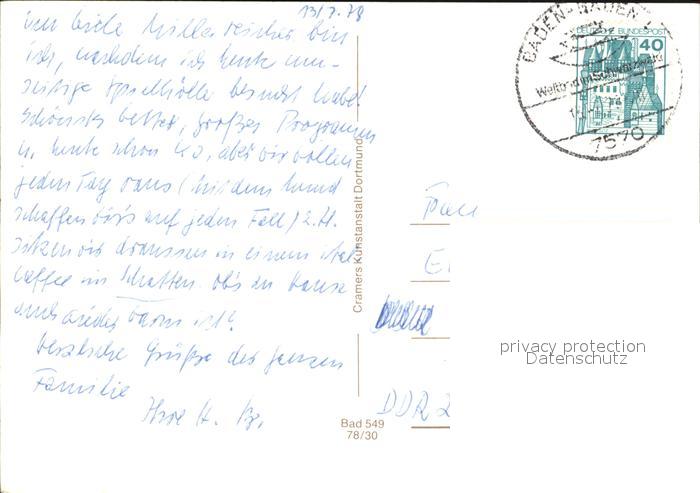 13/7.78
um viele Millionen reicher bin
ich, nachdem ich heute
Spielhölle besucht habe!
schönstes Wetter, großes Programm
u. heute schon k.o., aber wir wollen
jeden Tag raus (mit dem Hund
schaffen wir's auf jeden Fall) z. Zt.
sitzen wir draussen in einem ital.
Caffee im Schatten. ob's zu Hause
auch wieder warm ist?
herzliche Grüße der ganzen
Familie
Ihre H.
Cramers Kunstanstalt Dortmund
Bad 549
78/30
BADEN-BADEN 1
Weltbad im Schwarzwald
7570
DEUTSCHE BUNDESPOST
40
DDR
privacy protection
Datenschutz